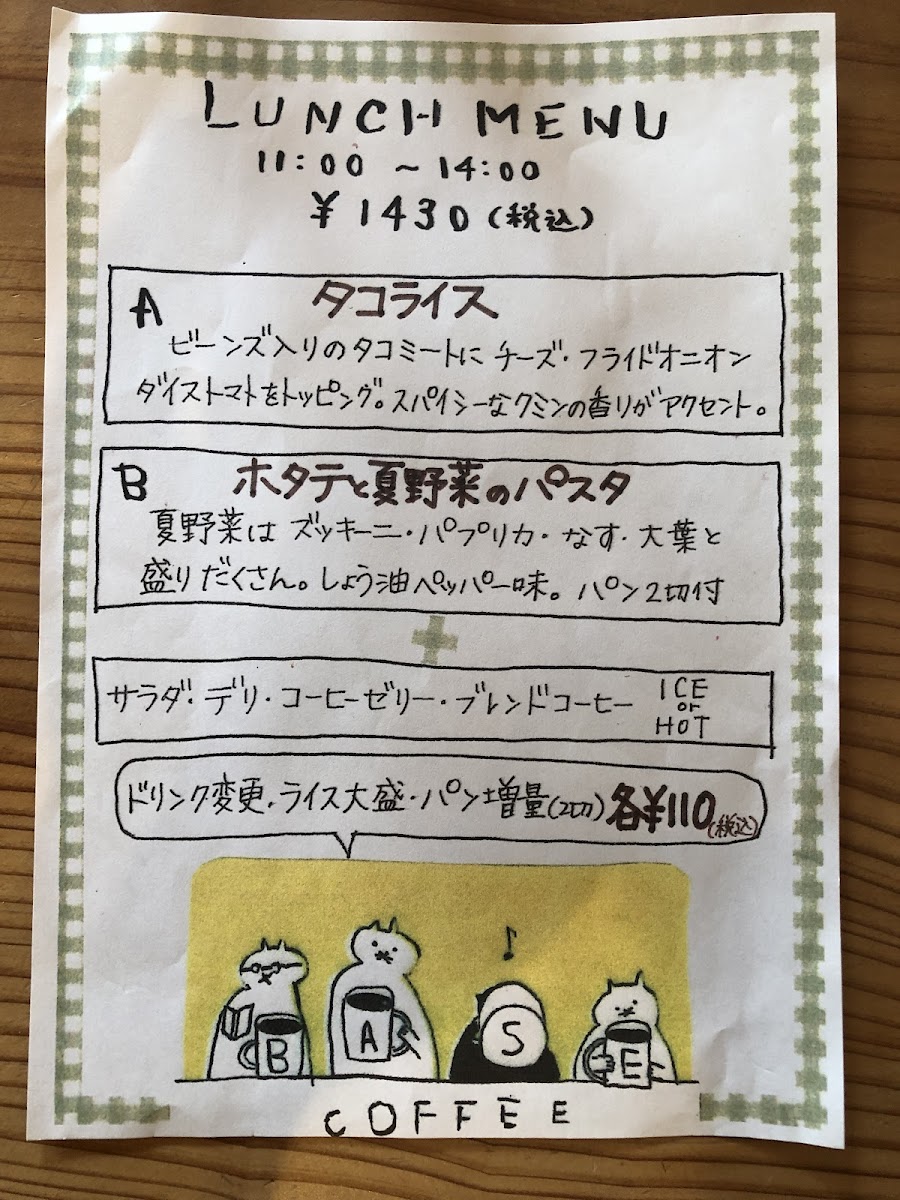 LUNCH MENU
11:00 ～14:00
¥1430(税込)
A タコライス
ビーンズ入りのタコミートに チーズ・フライドオニオン
ダイストマトをトッピング。スパイシーなクミンの香りがアクセント。
B ホタテと夏野菜のパスタ
夏野菜は ズッキーニ・パプリカ・なす・大葉と
盛りだくさん。しょう油ペッパー味。パン2切付
+
サラダ・デリ・コーヒーゼリー・ブレンドコーヒー ICE or HOT
ドリンク変更・ライス大盛・パン増量(2切) 各¥110(税込)
B A S E
COFFEE